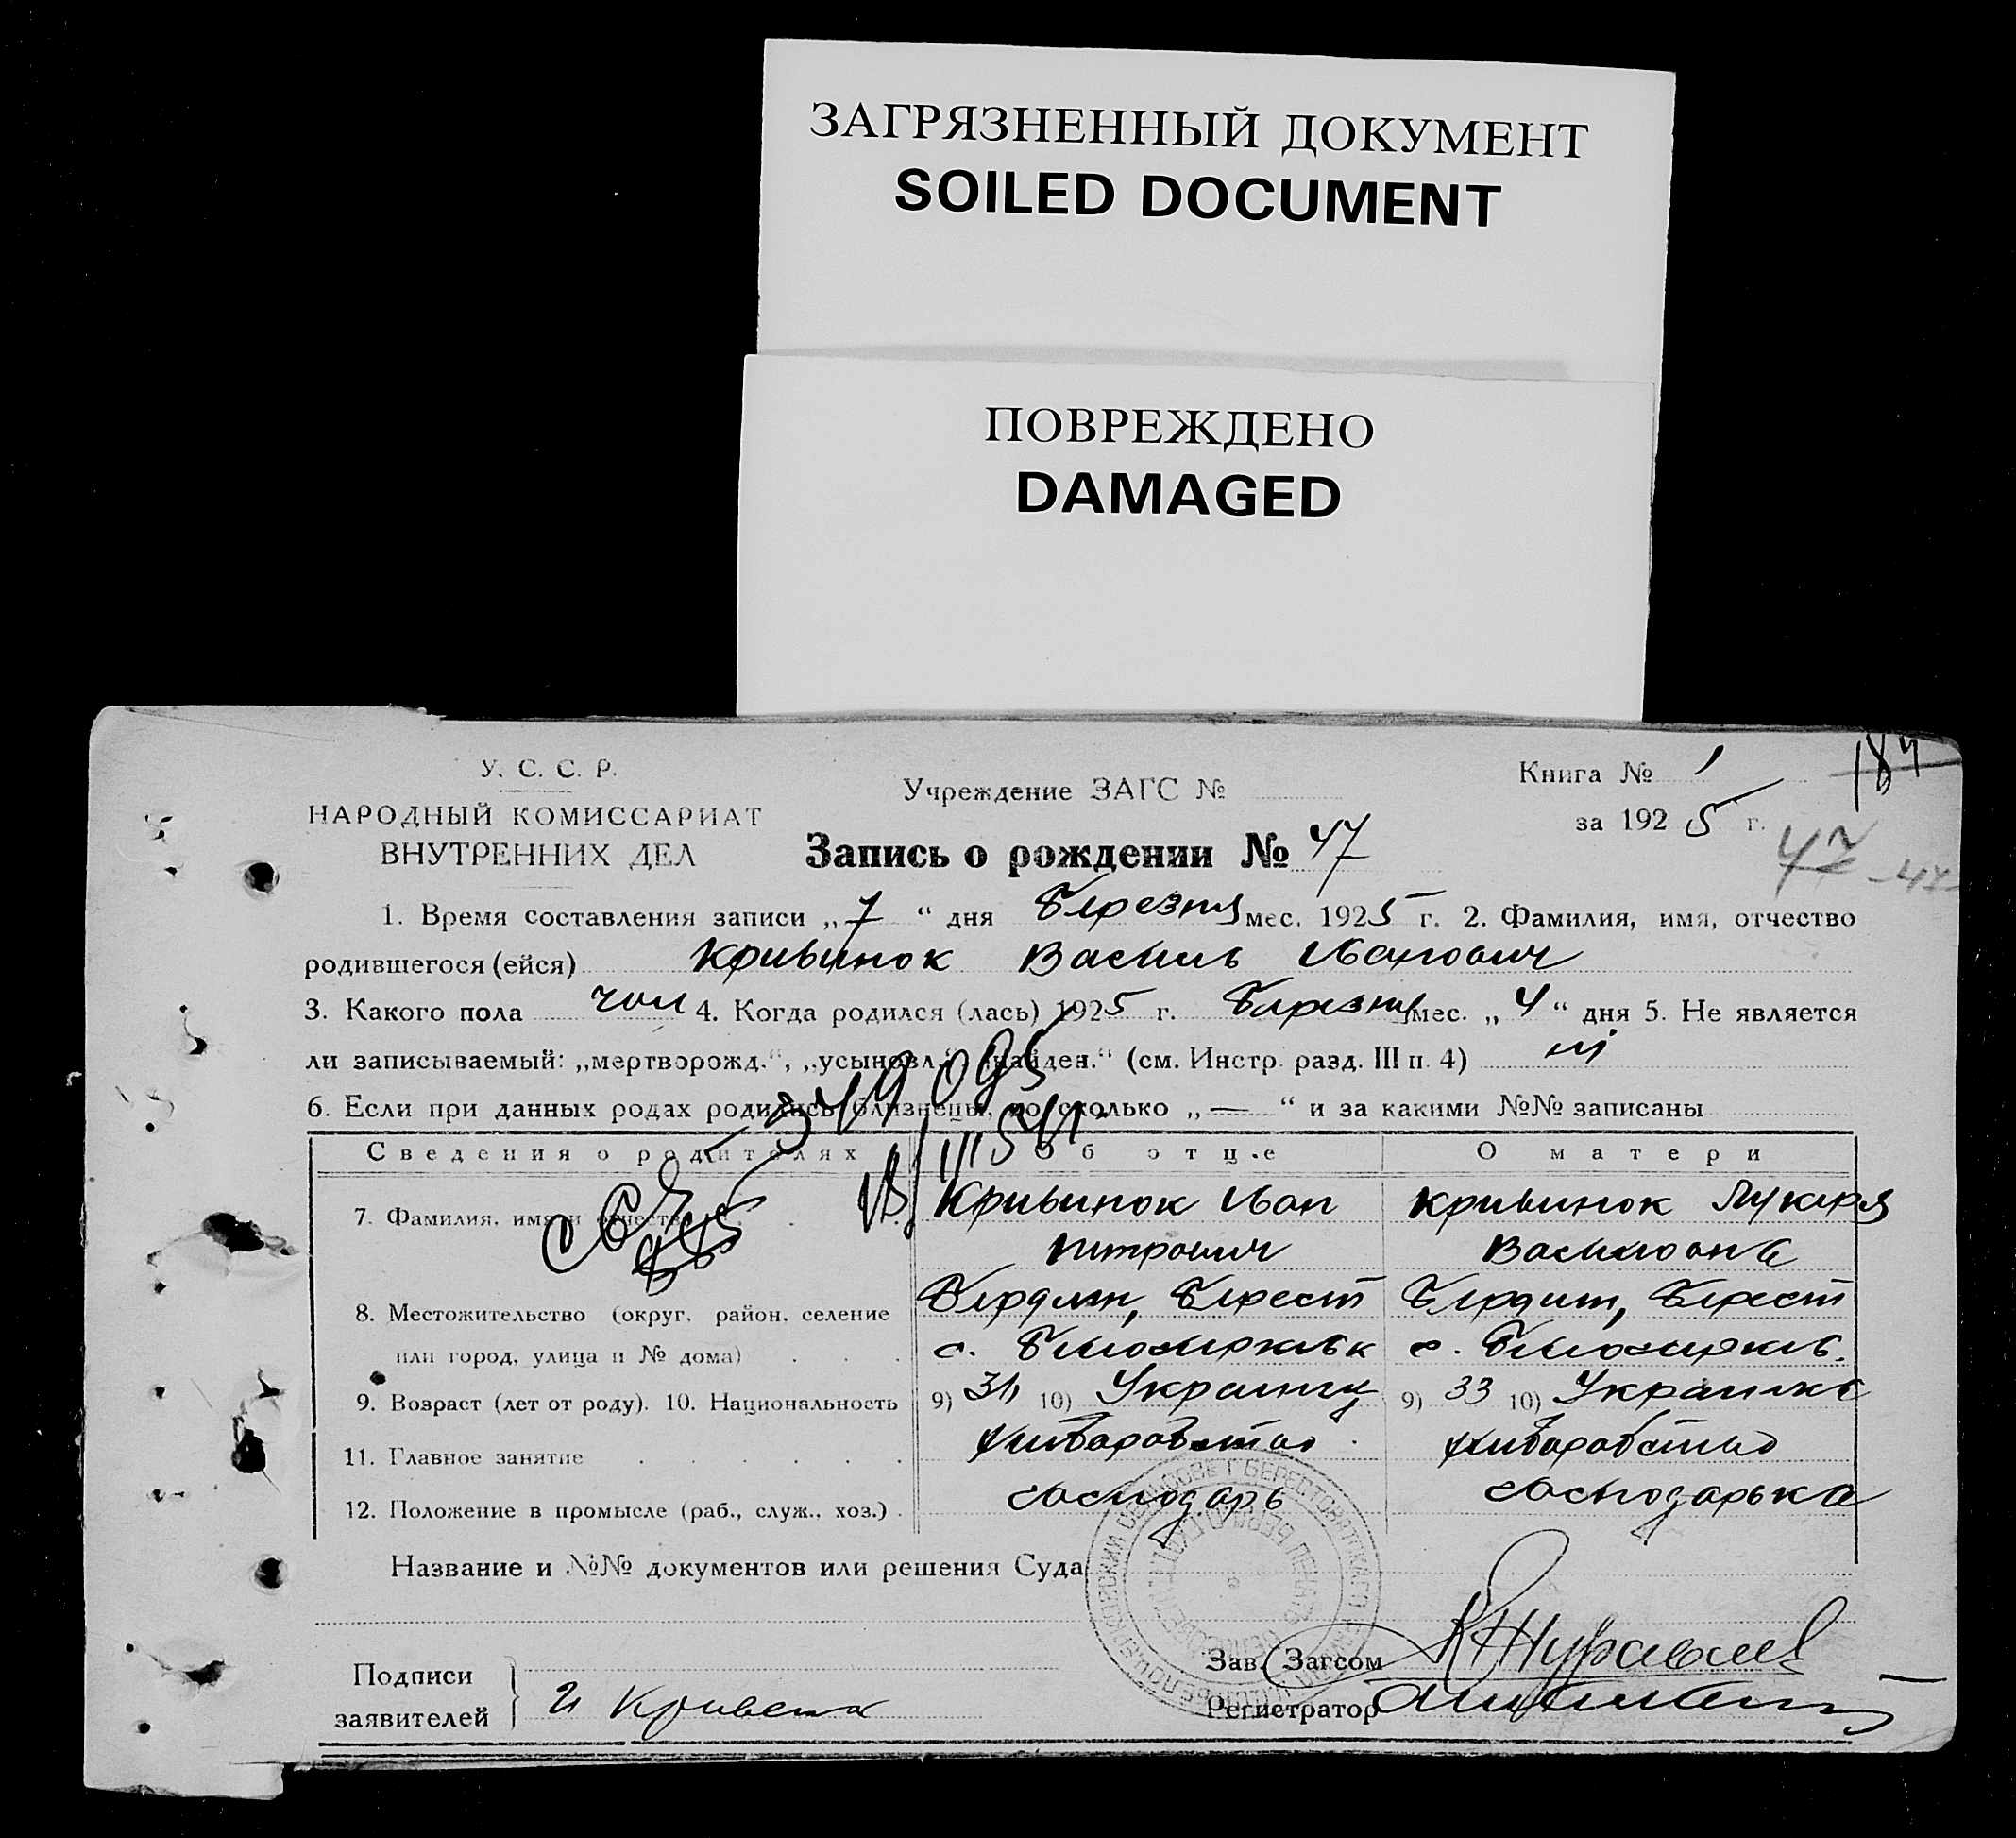 ЗАГРЯЗНЕННЫЙ ДОКУМЕНТ
SOILED DOCUMENT
ПОВРЕЖДЕНО
DAMAGED
У. С. С. Р.
НАРОДНЫЙ КОМИССАРИАТ
ВНУТРЕННИХ ДЕЛ
Учреждение ЗАГС №
Книга № 1
184
за 1925 г.
47 -47-
Запись о рождении № 47
1. Время составления записи „7“ дня Березня мес. 1925 г. 2. Фамилия, имя, отчество
родившегося (ейся) Кривинок Василь Иванович
3. Какого пола чол 4. Когда родился (лась) 1925 г. Березня мес. „4“ дня 5. Не является
ли записываемый: „мертворожд.“, „усыновл.“, „найден.“ (см. Инстр. разд. III п. 4) ні
6. Если при данных родах родились близнецы, то сколько „—“ и за какими №№ записаны
Сведения о родителях Об отце О матери
7. Фамилия, имя и отчество Кривинок Иван Кривинок Лукеря
Петрович Василовна
8. Местожительство (округ, район, селение Бердич, Берест Бердич, Берест
или город, улица и № дома) с. с.
9. Возраст (лет от роду). 10. Национальность 9) 31 10) Украинец 9) 33 10) Украинка
11. Главное занятие хлиборобство хлиборобство
12. Положение в промысле (раб., служ., хоз.) господарь господарька
Название и №№ документов или решения Суда
Подписи
заявителей
И Кривенок
Зав. Загсом Журавлев
Регистратор